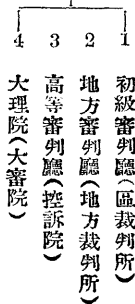 1 初級審判廳(區裁判所)
2 地方審判廳(地方裁判所)
3 高等審判廳(控訴院)
4 大理院(大審院)